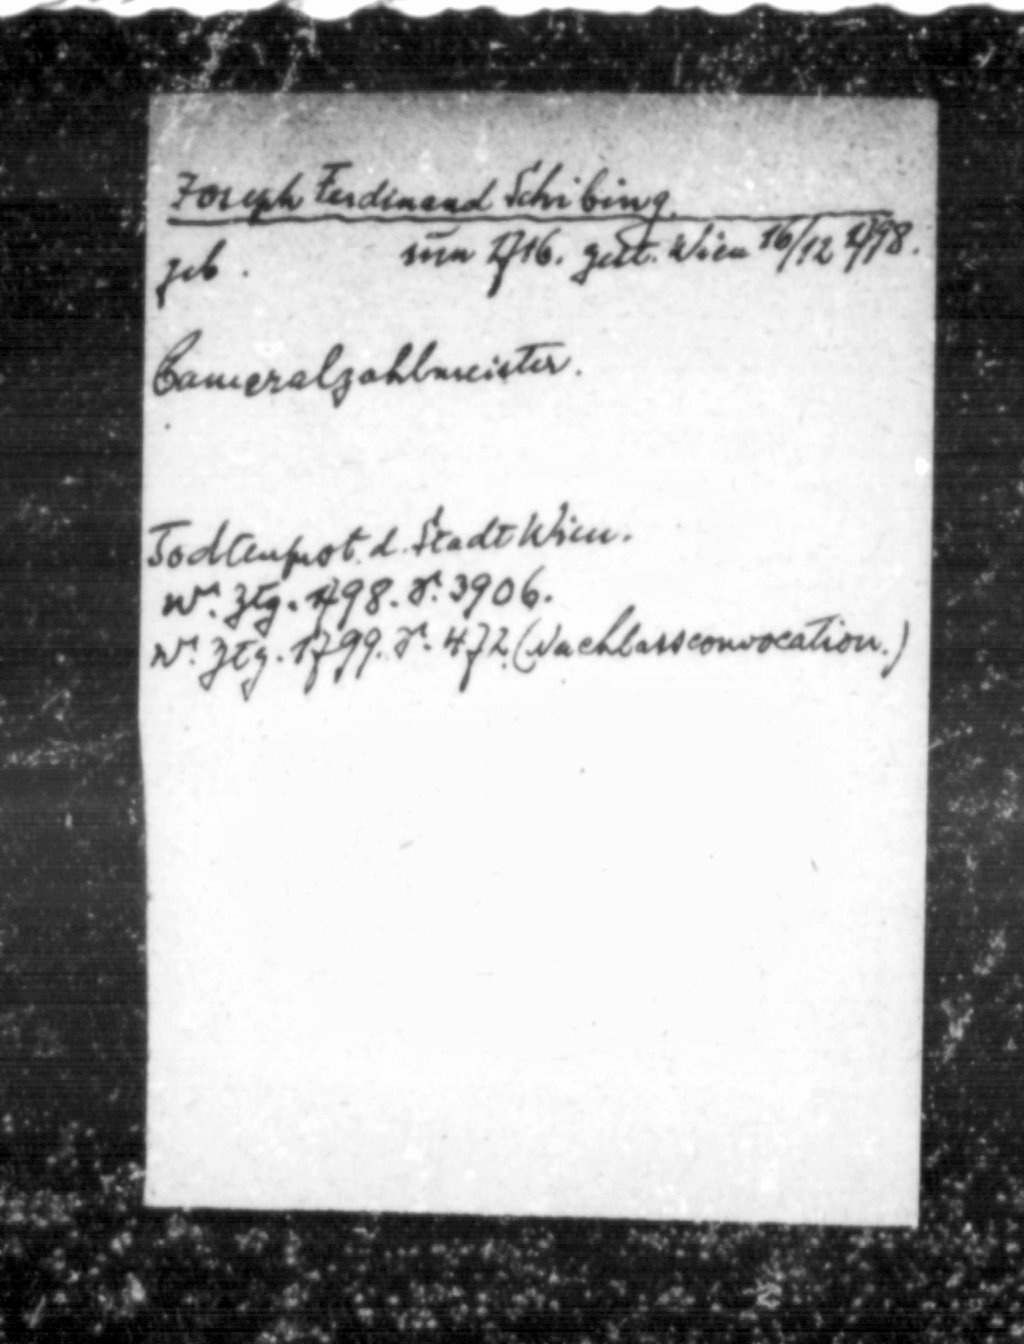 Joseph Ferdinand Schribing.
geb. um 1716. gest. Wien 16/12 1798.
Cameralzahlmeister.
Todtenprot. d. Stadt Wien.
Wr. Ztg. 1798. S. 3906.
Wr. Ztg. 1799. S. 472. (Nachlassconvocation.)